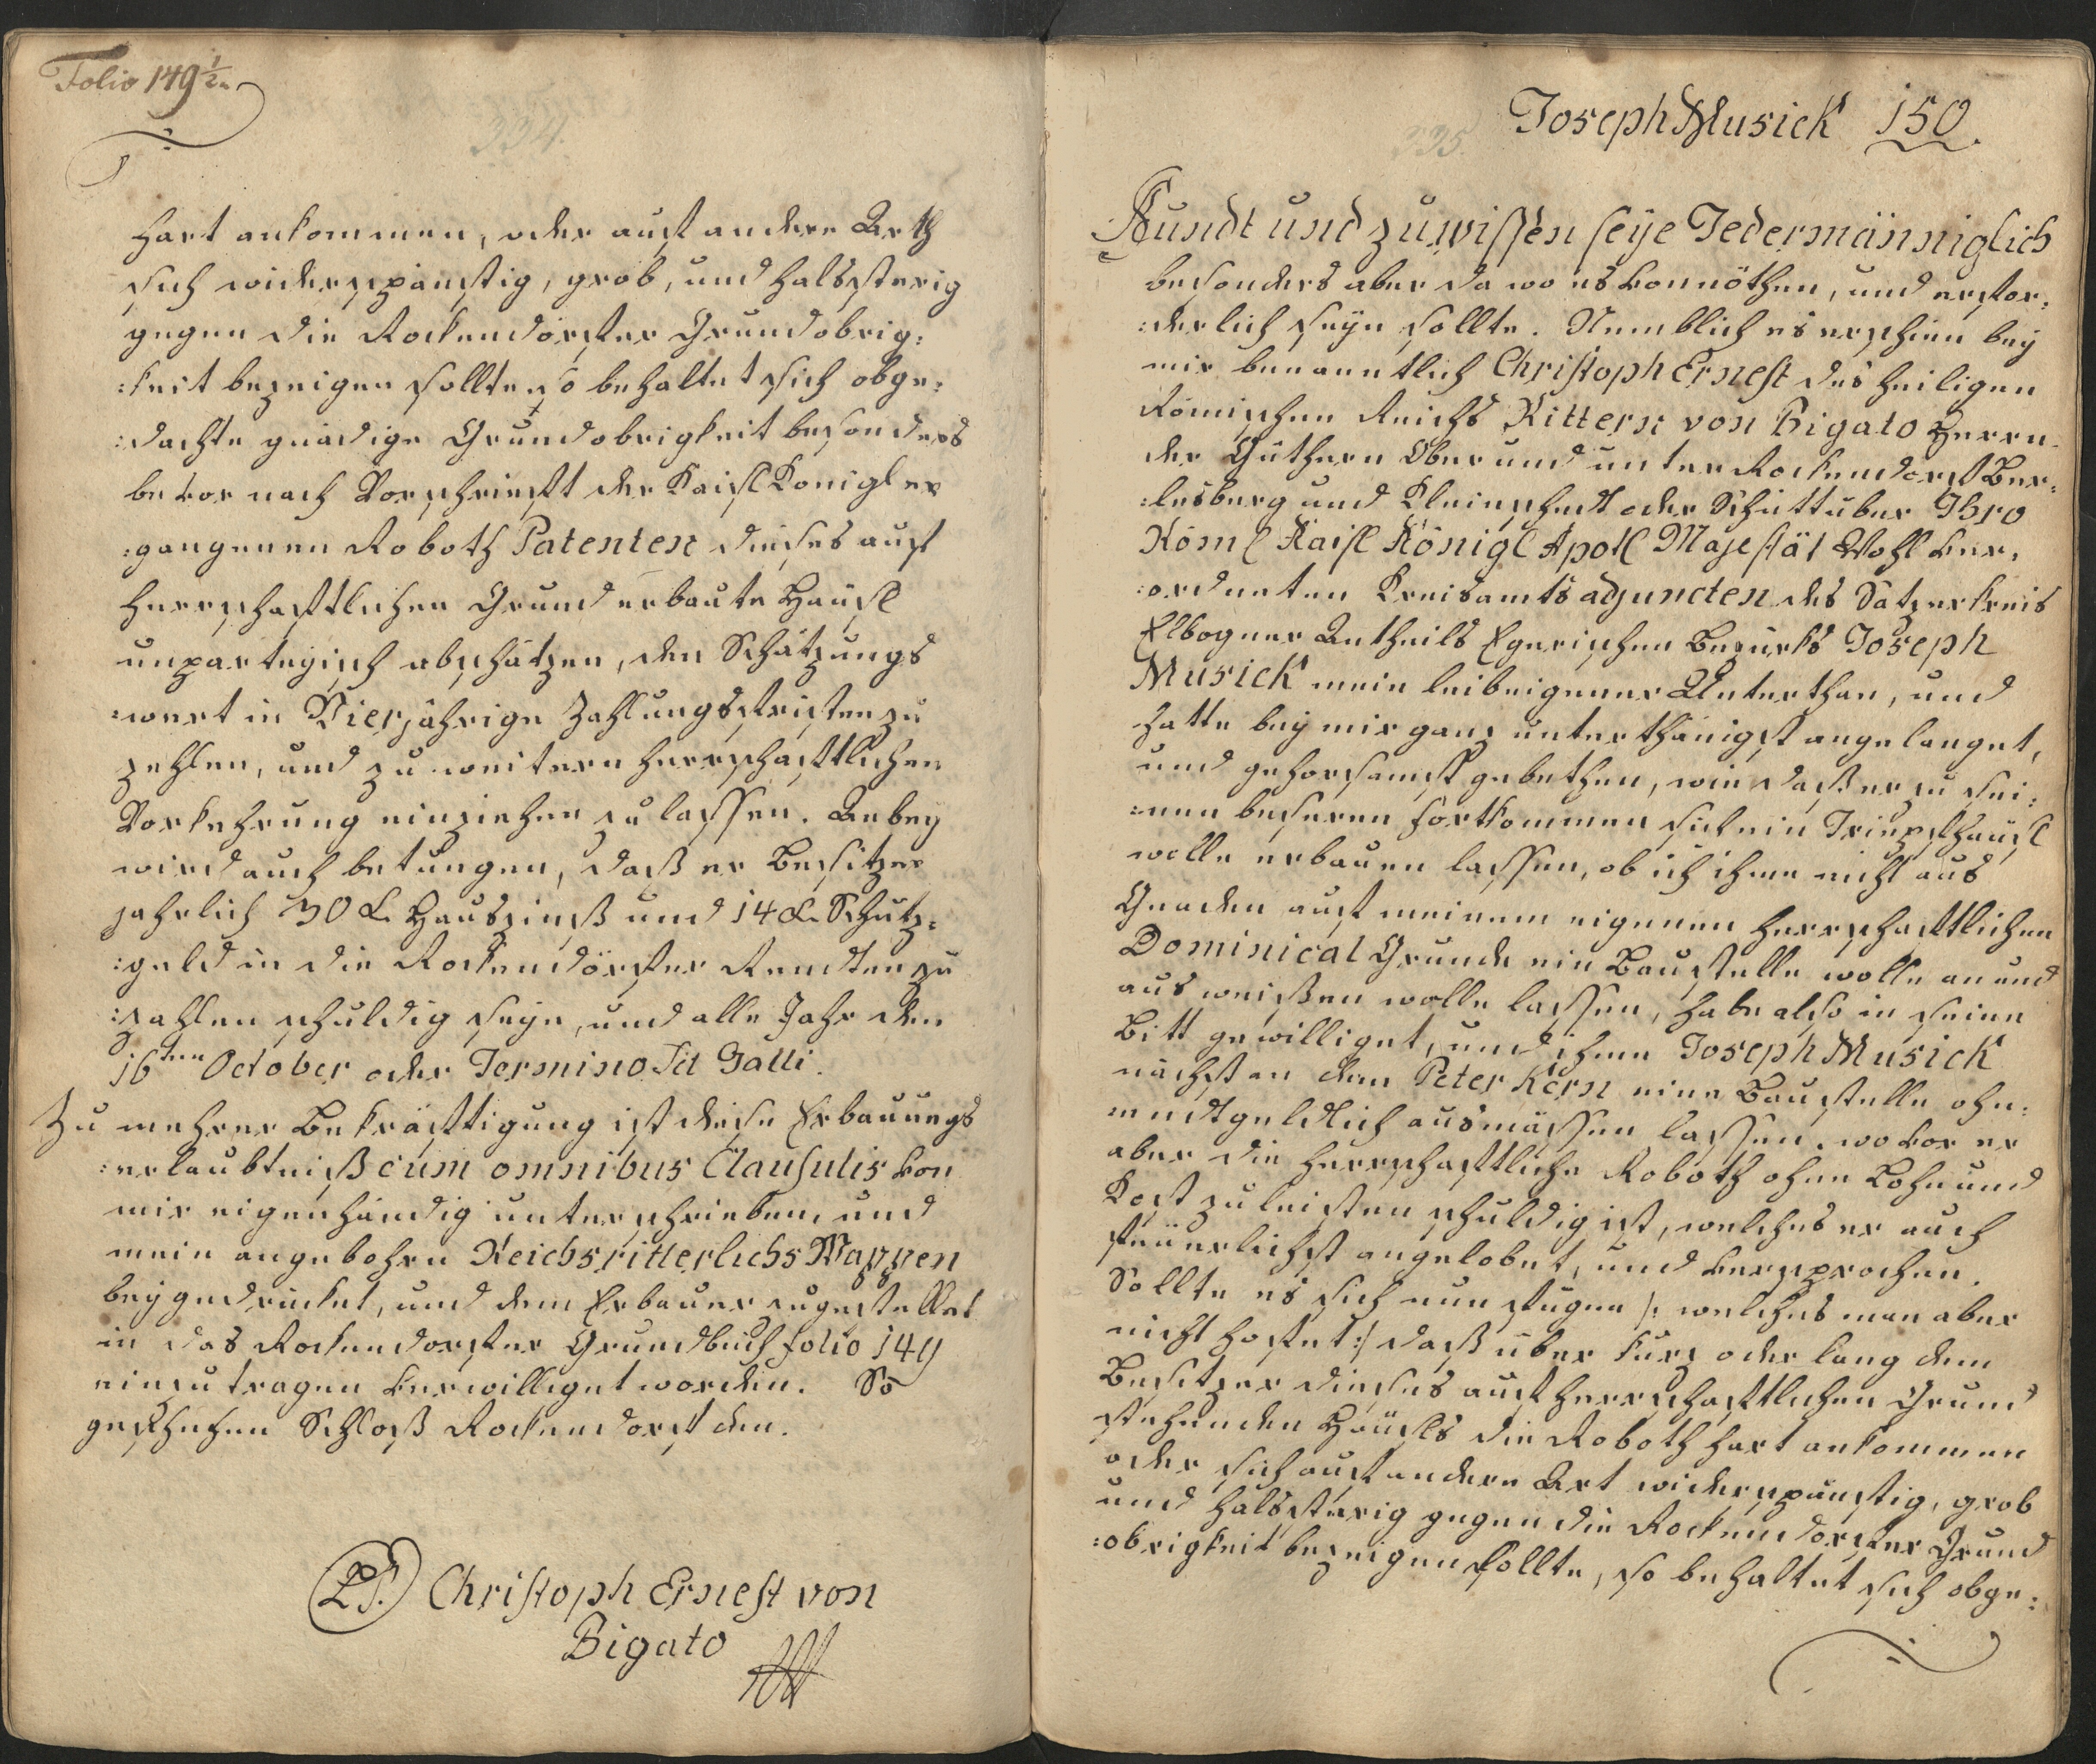 Folio 149 1/2
334.
hart ankommen, oder auf andere Arth
sich widerspänstig, grob, und halssterig
gegen die Rockendorfer Grundobrig:
:keit bezeigen sollte, so behaltet sich obge:
:dachte gnädige Grundobrigkeit besonders
bevor nach Vorschrieft der Kaisl Konigl er
:gangenen Roboth Patenten dieses auf
herrschaftlichen Grund erbaute Häusl
unparteyisch abschätzen, den Schätzungs
:wert in Vierjährige Zahlungsfristen zu
zehlen, und zu weitern herrschaftlichen
Vorkehrung einziehen zu lassen. Anbey
wird auch betungen, daß er Besitzer
jahrlich 30 x. Hauszinß und 14 x. Schutz:
:geld in die Rockendörfer Rendten zu
:zahlen schuldig seye, und alle Jahr den
16ten October oder Termino Sti Galli.
Zu mehrer Bekräftigung ist diese Erbauungs
:erlaubtniß cum omnibus Clausulis von
mir eigenhändig unterschrieben, und
mein angebohrn Reichsritterlichs Wappen
beygedrücket, und dem Erbauer zugestellet
in das Rockendorfer Grundbuch folio 149
einzutragen verwilliget worden. So
geschehen Schloß Rockendorf den.
LS. Christoph Ernest von
Bigato
Joseph Musick 150.
335.
Kundt und zu wißen seye Jedermänniglich
besonders aber da wo es vonnöthen, und erfor:
:derlich seyn sollte. Nemblich es erschien bey
mir benanntlich Christoph Ernest des heiligen
Römischen Reichs Rittern von Bigato Herrn
der Güthern Ober und unter Rockendorf Ber:
:lesburg und Kleinschedt oder Schüttüber Ihro
Röml Kaisl Königl Apotl Majestät Wohl ver:
:ordneten Kreisamts adjuncten des Satzerkreis
Elbogner Antheils Egerischen Bezürks Joseph
Musick mein leibeigener Unterthan, und
hatte bey mir ganz unterthänigst angelanget,
und gehorsamst gebethen, wie daß er zu sei:
:nen besseren fortkommen sich ein Tripfhäusl
wolle erbauen lassen, ob ich ihme nicht aus
Gnaden auf meinem eigenen herrschaftlichen
Dominical Grunde ein Baustelle wolle an und
aus weißen wolle lassen, habe also in seine
Bitt gewilliget, und ihme Joseph Musick
nächst an dem Peter Kern eine Baustelle ohn:
:endtgeldlich ausmässen lassen, wovor er
aber die herrschaftliche Roboth ohne Lohn und
Kost zu leisten schuldig ist, welches er auch
feüerlichst angelobet, und versprochen.
Sollte es sich nun fugen /: welches man aber
nicht hofet :/ daß über kurz oder lang dem
Besitzer dieses auf herrschaftlichen Grund
stehenden Häusls die Roboth hart ankommen
oder sich auf andere Art widerspänstig, grob
und halsstärig gegen die Rockendorfer Grund
:obrigkeit bezeigen sollte, so behaltet sich obge: